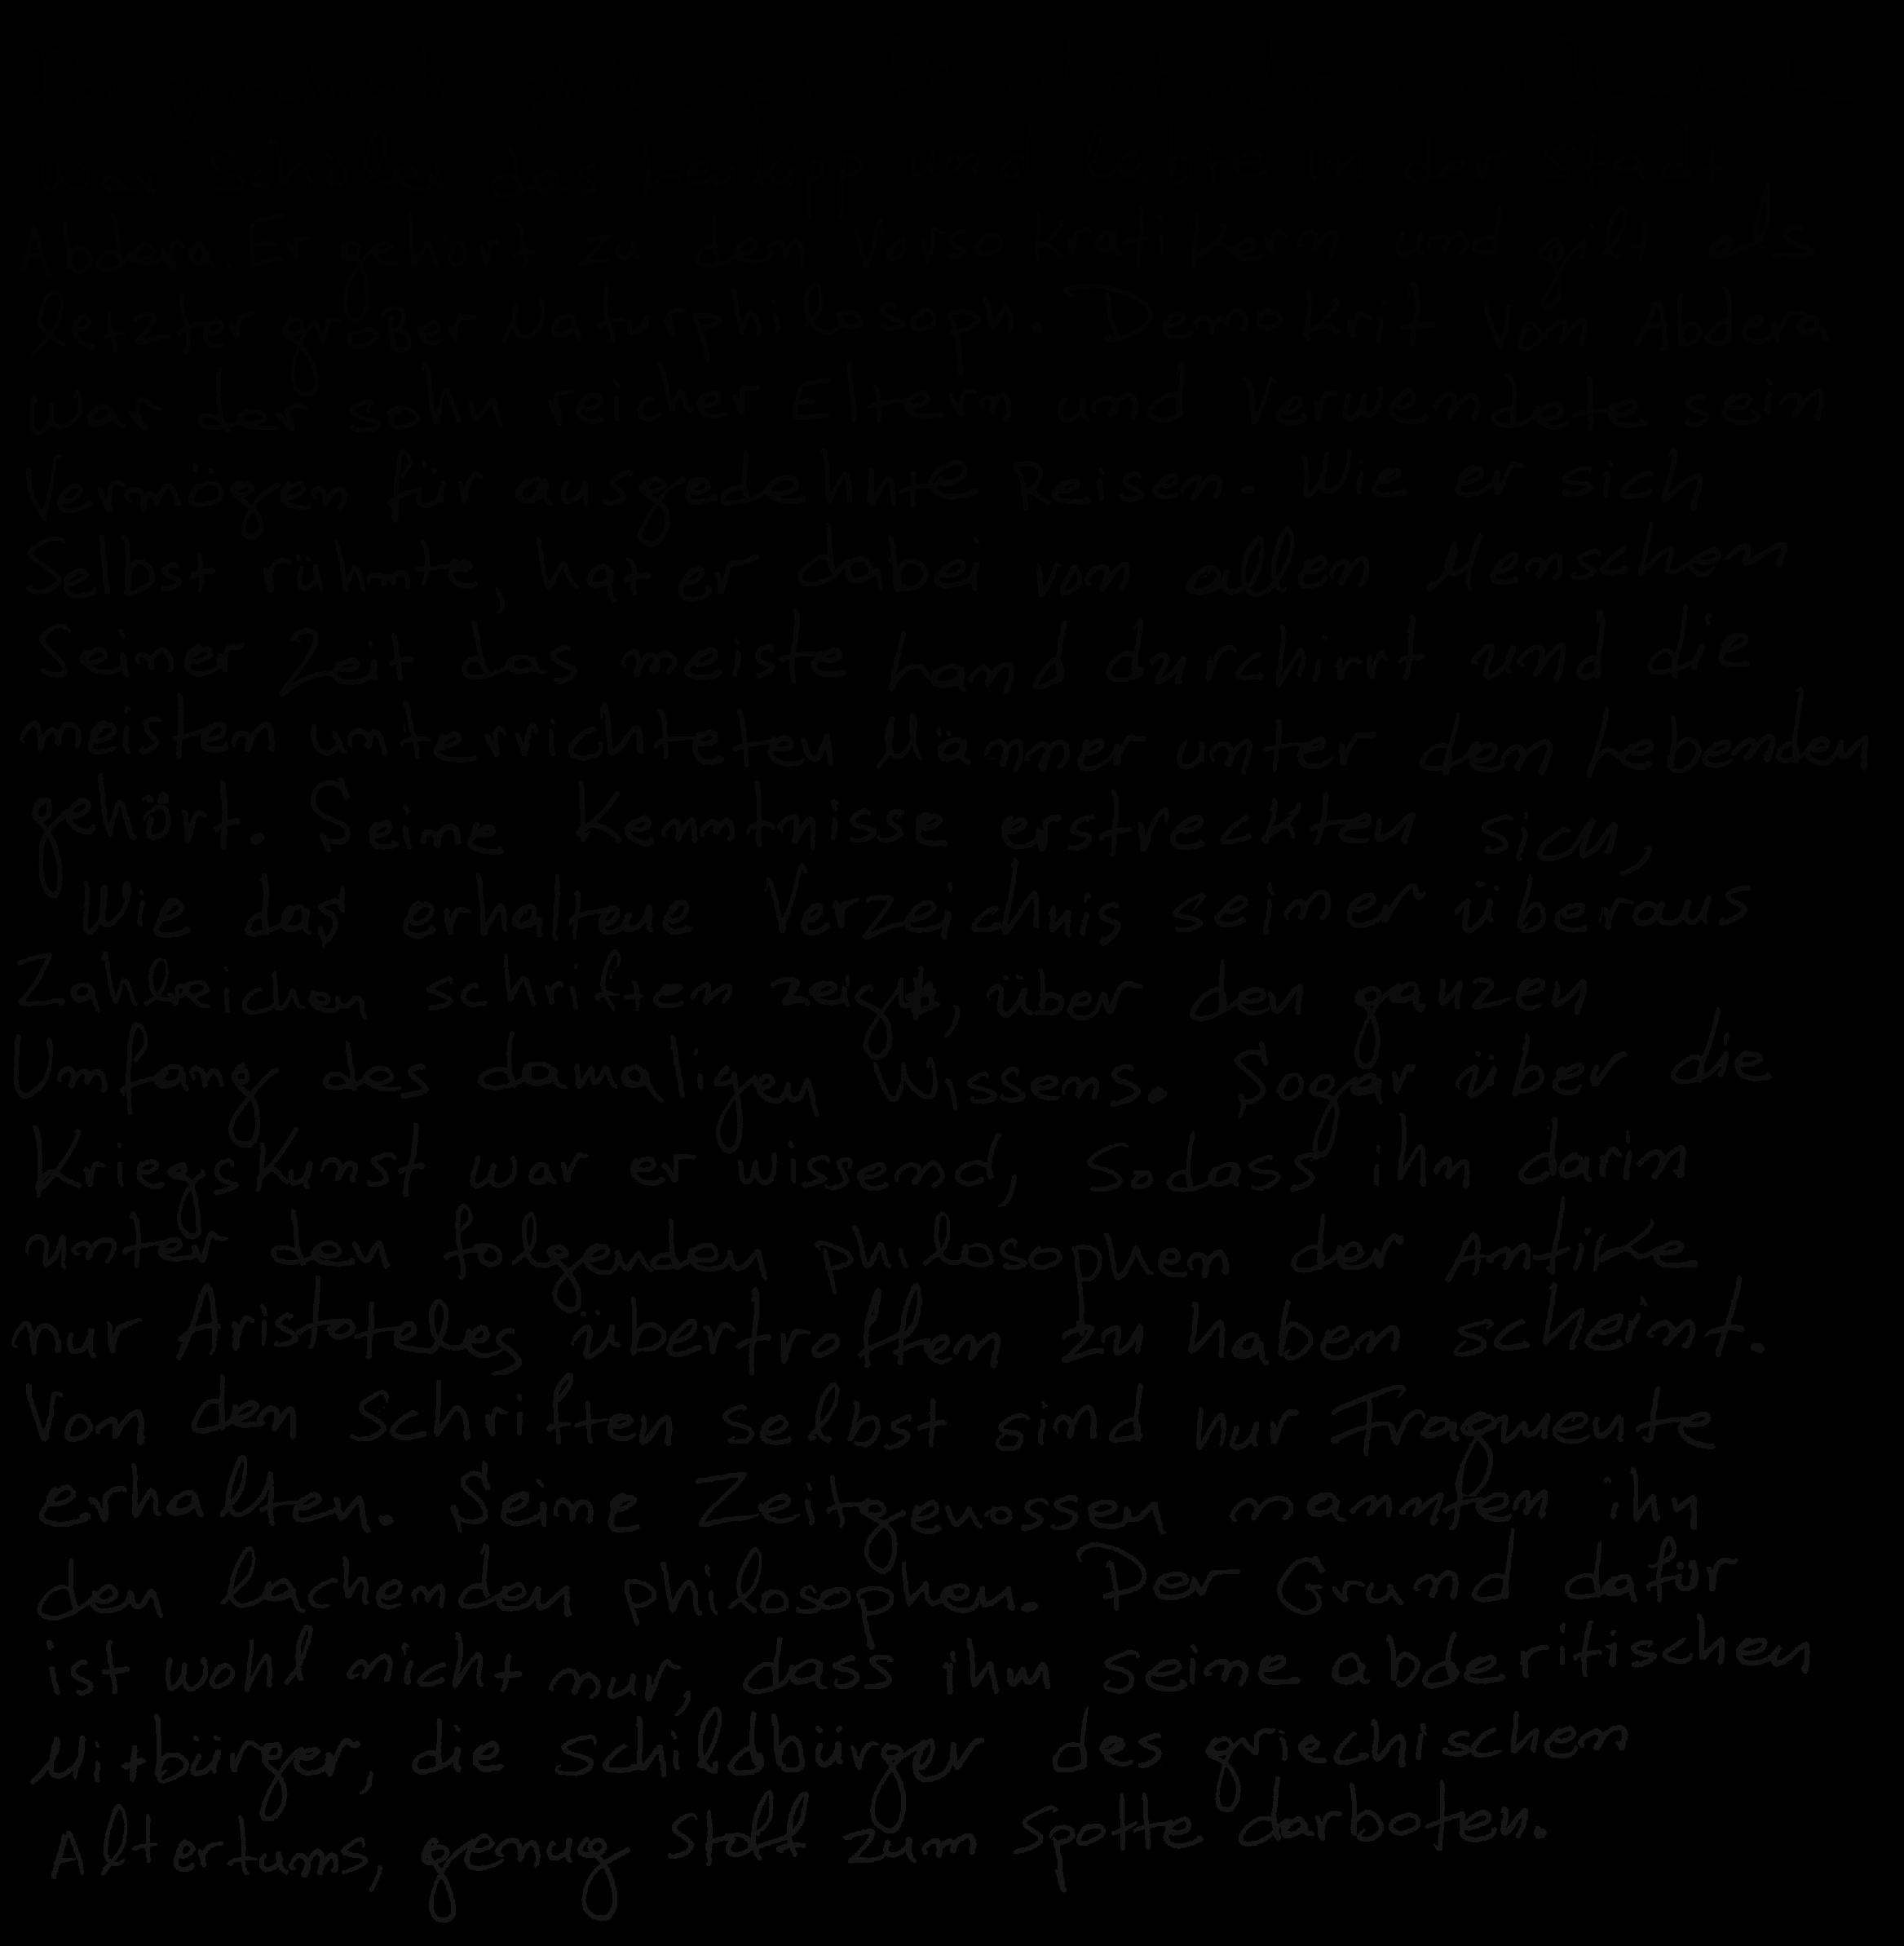 war Schüler des Leukipp und lebte in der Stadt
Abdera. Er gehört zu den Vorsokratikern und gilt als
letzter großer Naturphilosoph. Demokrit von Abdera
war der sohn reicher Eltern und verwendete sein
Vermögen für ausgedehnte Reisen. Wie er sich
Selbst rühmte, hat er dabei von allen Menschen
Seiner Zeit das meiste Land durchirrt und die
meisten unterrichteten Männer unter den Lebenden
gehört. Seine Kenntnisse erstreckten sich,
Wie das erhaltene Verzeichnis seiner überaus
Zahlreichen schriften zeigt, über den ganzen
Umfang des damaligen Wissens. Sogar über die
Kriegskunst war er wissend, Sodass ihn darin
unter den folgenden philosophen der Antike
nur Aristoteles übertroffen zu haben scheint.
Von den Schriften selbst sind nur Fragmente
erhalten. Seine Zeitgenossen nannten ihn
den lachenden philosophen. Der Grund dafür
ist wohl nicht nur, dass ihm seine abderitischen
Mitbürger, die Schildbürger des griechischen
Altertums, genug Stoff zum Spotte darboten.